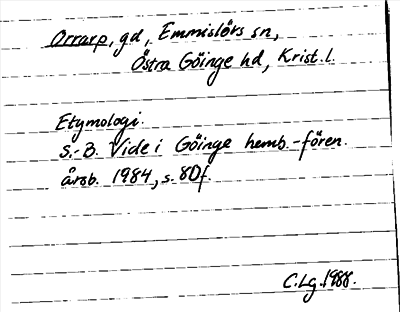 Orrarp, gd, Emmislövs sn,
Östra Göinge hd, Krist. l.
Etymologi.
S.-B. Vide i Göinge hemb.-fören.
årsb. 1984, s. 80f.
C.Lg. 1988.